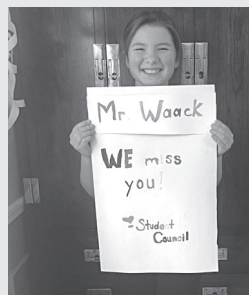 Mr. Waack
WE miss
you!
Student
Council